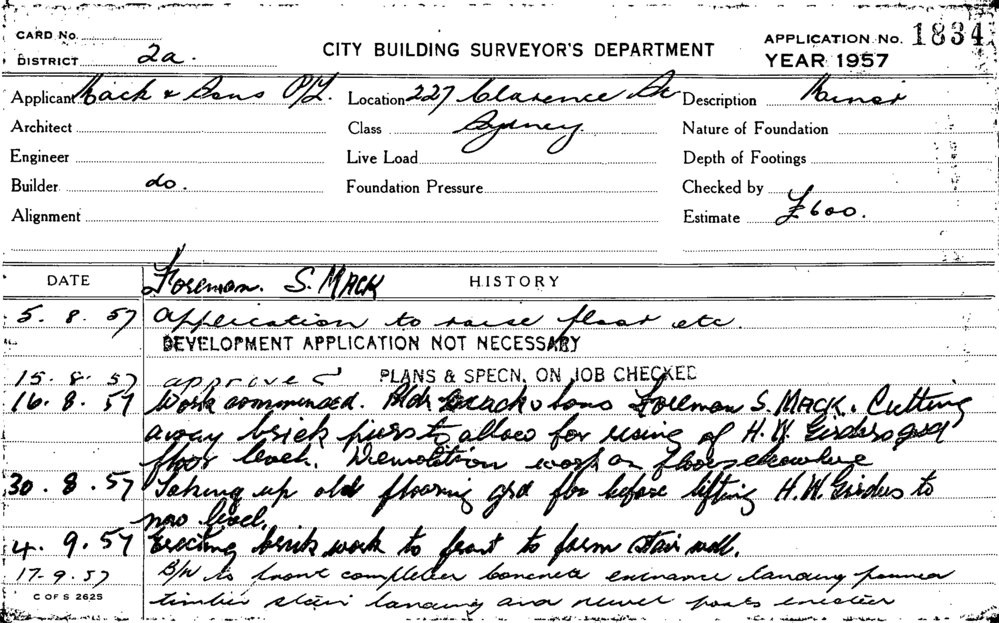 CARD No.
DISTRICT 2a.
CITY BUILDING SURVEYOR'S DEPARTMENT
APPLICATION No. 1834
YEAR 1957
Applicant Mack & Sons P/L. Location 227 Clarence St Description Minor
Architect Class Sydney. Nature of Foundation
Engineer Live Load Depth of Footings
Builder do. Foundation Pressure Checked by
Alignment Estimate £600.
DATE Foreman. S. MACK HISTORY
5. 8. 57 Application to raise floor etc.
DEVELOPMENT APPLICATION NOT NECESSARY
15. 8. 57 approved PLANS & SPECN, ON JOB CHECKED
16. 8. 57 Work commenced. Bldr Mack & Sons Foreman S. MACK. Cutting
away brick piers to allow for rising of H.W. Girders grd
floor level. Demolition work on floor elsewhere
30. 8. 57 Taking up old flooring grd flr before lifting H.W. Girders to
new level.
4. 9. 57 Erecting brick work to front to form stair wall.
17-9.57 B/W to front completed concrete entrance landing formed
C OF S 2625 timber stair landing and newel posts erected